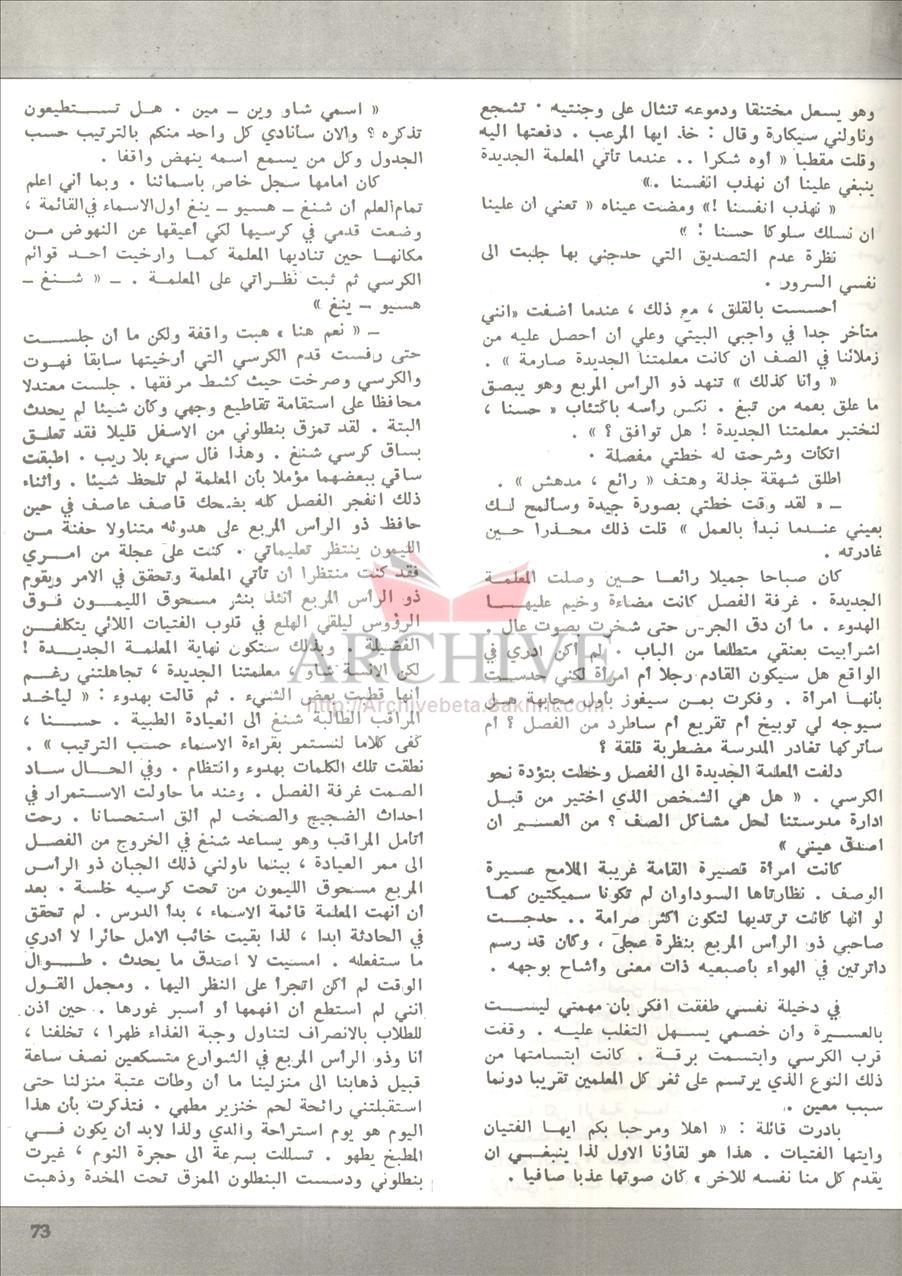 وهو يسعل مختنقا ودموعه تنثال على وجنتيه . تشجع
وناولني سيكارة وقال : خذ ايها المرعب . دفعتها اليه
وقلت مقطبا « أوه شكرا .. عندما تأتي المعلمة الجديدة
ينبغي علينا أن نهذب انفسنا .»
« نهذب انفسنا !» ومضت عيناه « تعني ان علينا
ان نسلك سلوكا حسنا ! »
نظرة عدم التصديق التي حدجني بها جلبت الى
نفسي السرور .
أحسست بالقلق ، مع ذلك ، عندما أضفت «انني
متأخر جدا في واجبي البيتي وعلي أن احصل عليه من
زملائنا في الصف ان كانت معلمتنا الجديدة صارمة » .
« وأنا كذلك » تنهد ذو الرأس المربع وهو يبصق
ما علق بفمه من تبغ . نكس رأسه باكتئاب « حسنا ،
لنختبر معلمتنا الجديدة ! هل توافق ؟ » .
اتكأت وشرحت له خطتي مفصلة .
اطلق شهقة جذلة وهتف « رائع ، مدهش » .
ـ « لقد وقت خطتي بصورة جيدة وسألمح لك
بعيني عندما نبدأ بالعمل » قلت ذلك محذرا حين
غادرته .
كان صباحا جميلا رائعا حين وصلت المعلمة
الجديدة . غرفة الفصل كانت مضاءة وخيم عليها
الهدوء . ما أن دق الجرس حتى شخرت بصوت عال .
اشرأبيت بعنقي متطلعا من الباب . لم اكن ادري في
الواقع هل سيكون القادم رجلا أم امرأة لكني حدست
بأنها امرأة . وفكرت بمن سيفوز بأول مجابهة هل
سيوجه لي توبيخ ام تقريع ام ساطرد من الفصل ؟ أم
سأتركها تغادر المدرسة مضطربة قلقة ؟
دلفت المعلمة الجديدة الى الفصل وخطت بتؤدة نحو
الكرسي . « هل هي الشخص الذي اختير من قبل
ادارة مدرستنا لحل مشاكل الصف ؟ من العسير ان
اصدق عيني »
كانت امرأة قصيرة القامة غريبة الملامح عسيرة
الوصف . نظارتاها السوداوان لم تكونا سميكتين كما
لو أنها كانت ترتديها لتكون اكثر صرامة .. حدجت
صاحبي ذو الرأس المربع بنظرة عجلى ، وكان قد رسم
دائرتين في الهواء بأصبعيه ذات معنى وأشاح بوجهه .
في دخيلة نفسي طفقت افكر بأن مهمتي ليست
بالعسيرة وان خصمي يسهل التغلب عليه . وقفت
قرب الكرسي وابتسمت برقة . كانت ابتسامتها من
ذلك النوع الذي يرتسم على ثغر كل المعلمين تقريبا دونما
سبب معين .
بادرت قائلة : « اهلا ومرحبا بكم ايها الفتيان
وايتها الفتيات . هذا هو لقاؤنا الاول لذا ينبغي ان
يقدم كل منا نفسه للآخر » كان صوتها عذبا صافيا .
« اسمي شاو وين ـ مين . هل تستطيعون
تذكره ؟ والان سأنادي كل واحد منكم بالترتيب حسب
الجدول وكل من يسمع اسمه ينهض واقفا .
كان امامها سجل خاص باسمائنا . وبما أني اعلم
تمام العلم أن شنغ ـ هسيو ـ ينغ أول الاسماء في القائمة ،
وضعت قدمي في كرسيها لكي أعيقها عن النهوض من
مكانها حين تناديها المعلمة كما وارخيت أحد قوائم
الكرسي ثم ثبت نظراتي على المعلمة . ـ « شنغ ـ
هسيو ـ ينغ »
ـ « نعم هنا » هبت واقفة ولكن ما أن جلست
حتى رفست قدم الكرسي التي أرخيتها سابقا فهوت
والكرسي وصرخت حيث كشط مرفقها . جلست معتدلا
محافظا على استقامة تقاطيع وجهي وكأن شيئا لم يحدث
البتة . لقد تمزق بنطلوني من الاسفل قليلا فقد تعلق
بساق كرسي شنغ . وهذا فال سيء بلا ريب . اطبقت
ساقي ببعضهما مؤملا بأن المعلمة لم تلحظ شيئا . وأثناء
ذلك انفجر الفصل كله بضحك قاصف عاصف في حين
حافظ ذو الرأس المربع على هدوئه متناولا حفنة من
الليمون ينتظر تعليماتي . كنت على عجلة من امري
فقد كنت منتظرا أن تأتي المعلمة وتحقق في الامر ويقوم
ذو الرأس المربع آنئذ بنثر مسحوق الليمون فوق
الرؤوس ليلقي الهلع في قلوب الفتيات اللائي يتكلفن
الفضيلة . وبذلك ستكون نهاية المعلمة الجديدة !
لكن الآنسة شاو ، معلمتنا الجديدة ، تجاهلتني رغم
أنها قطبت بعض الشيء . ثم قالت بهدوء : « ليأخذ
المراقب الطالبة شنغ الى العيادة الطبية . حسنا ،
كفى كلاما لنستمر بقراءة الاسماء حسب الترتيب » .
نطقت تلك الكلمات بهدوء وانتظام . وفي الحال ساد
الصمت غرفة الفصل . وعند ما حاولت الاستمرار في
احداث الضجيج والصخب لم ألق استحسانا . رحت
أتأمل المراقب وهو يساعد شنغ في الخروج من الفصل
الى ممر العيادة ، بينما ناولني ذلك الجبان ذو الرأس
المربع مسحوق الليمون من تحت كرسيه خلسة . بعد
أن أنهت المعلمة قائمة الاسماء ، بدأ الدرس . لم تحقق
في الحادثة ابدا ، لذا بقيت خائب الامل حائرا لا أدري
ما ستفعله . امسيت لا اصدق ما يحدث . طوال
الوقت لم اكن اتجرأ على النظر اليها . ومجمل القول
انني لم استطع ان افهمها أو أسبر غورها . حين أذن
للطلاب بالانصراف لتناول وجبة الغذاء ظهرا ، تخلفنا ،
أنا وذو الرأس المربع في الشوارع متسكعين نصف ساعة
قبيل ذهابنا الى منزلينا ما أن وطأت عتبة منزلنا حتى
استقبلتني رائحة لحم خنزير مطهي . فتذكرت بأن هذا
اليوم هو يوم استراحة والدي ولذا لابد أن يكون في
المطبخ يطهو . تسللت بسرعة الى حجرة النوم ، غيرت
بنطلوني ودسست البنطلون الممزق تحت المخدة وذهبت
ARCHIVE
http://Archivebeta.Sakhrit.com
73